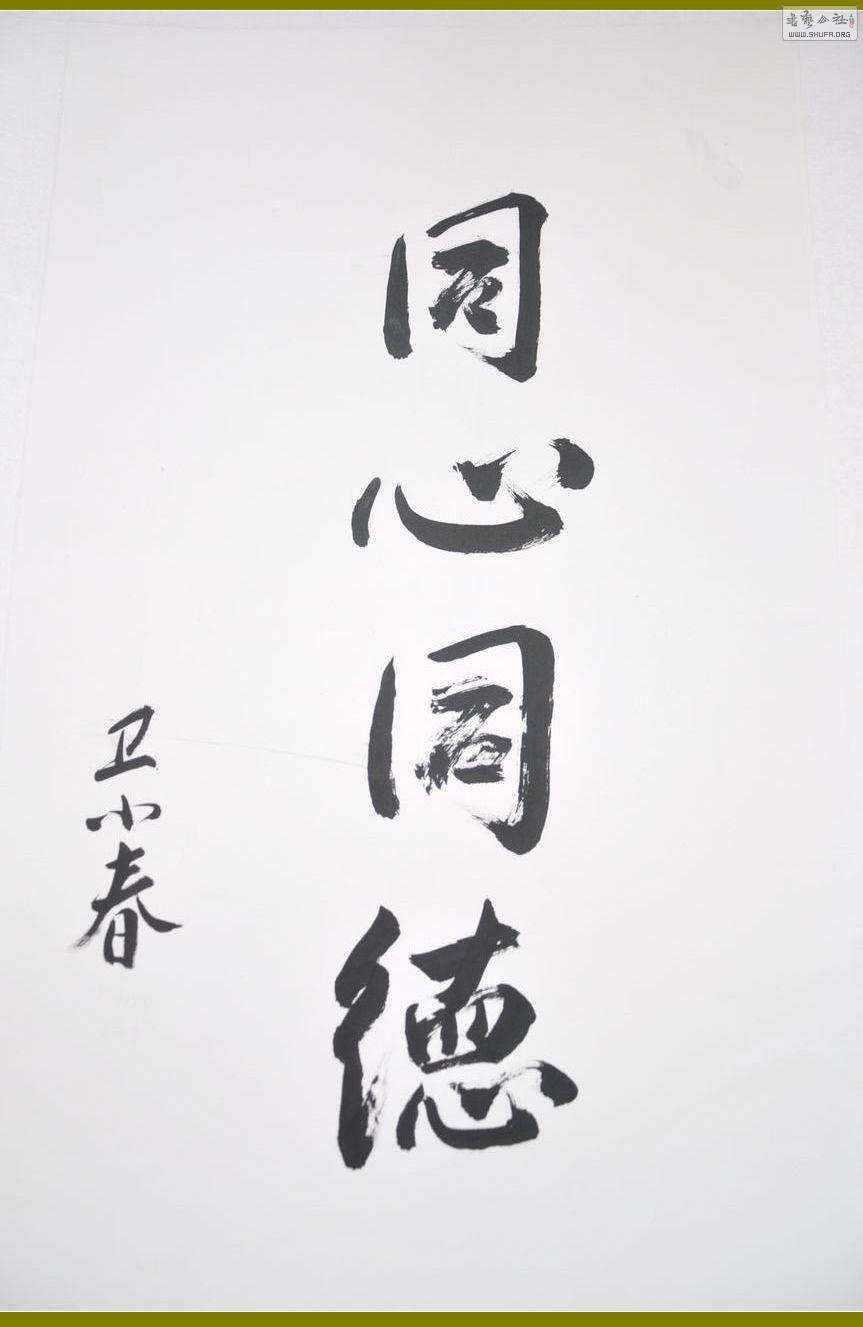 同心同德
卫小春
书艺公社
WWW.SHUFA.ORG